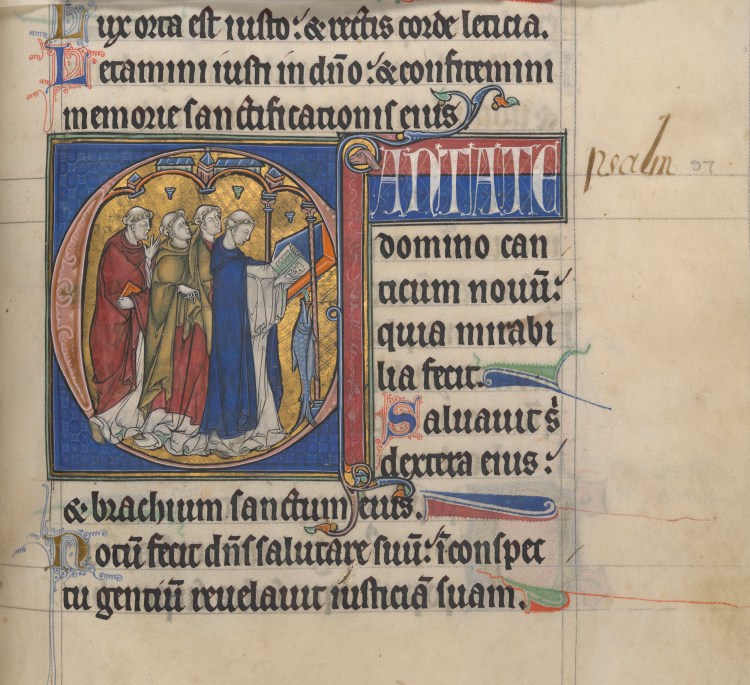 Lux orta est iusto: & rectis corde leticia.
Letamini iusti in dño: & confitemini
memorie sanctificationis eius
CANTATE
psalm 97
domino can
ticum nouũ:
quia mirabi
lia fecit.
Saluauit s̃
dextera eius:
& brachium sanctum eius.
Notũ fecit dñs salutare suũ: ĩ conspec
tu gentiũ reuelauit iusticiã suam.